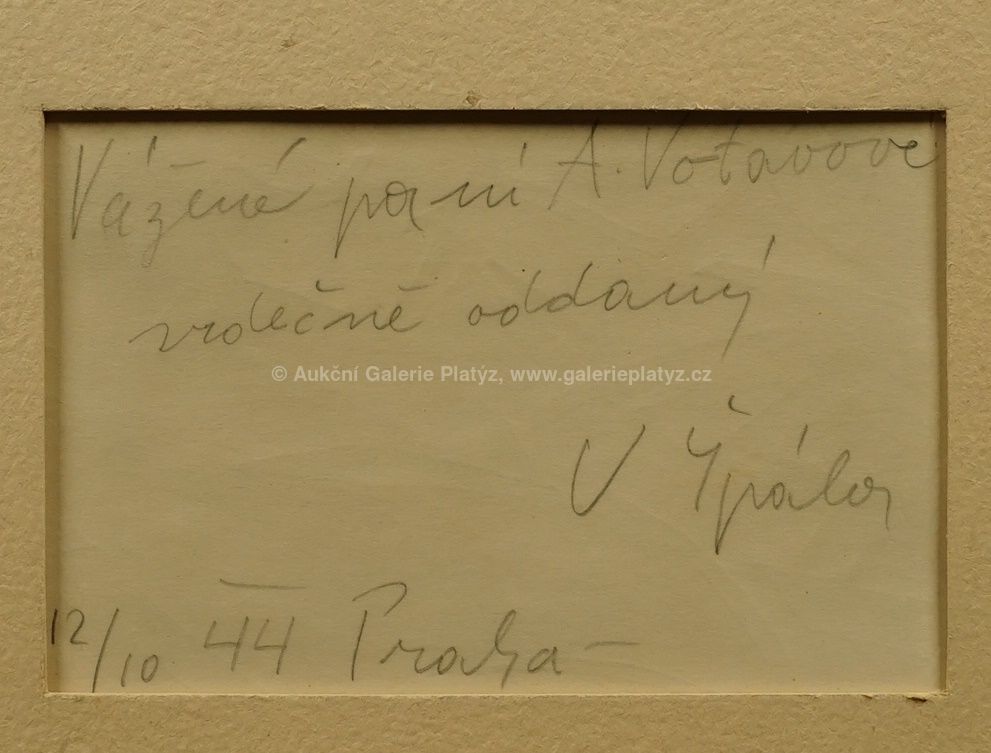 Vážené paní A. Votavové
srdečně oddaný
© Aukční Galerie Platýz, www.galerieplatyz.cz
V Špála
12/10 44 Praha –